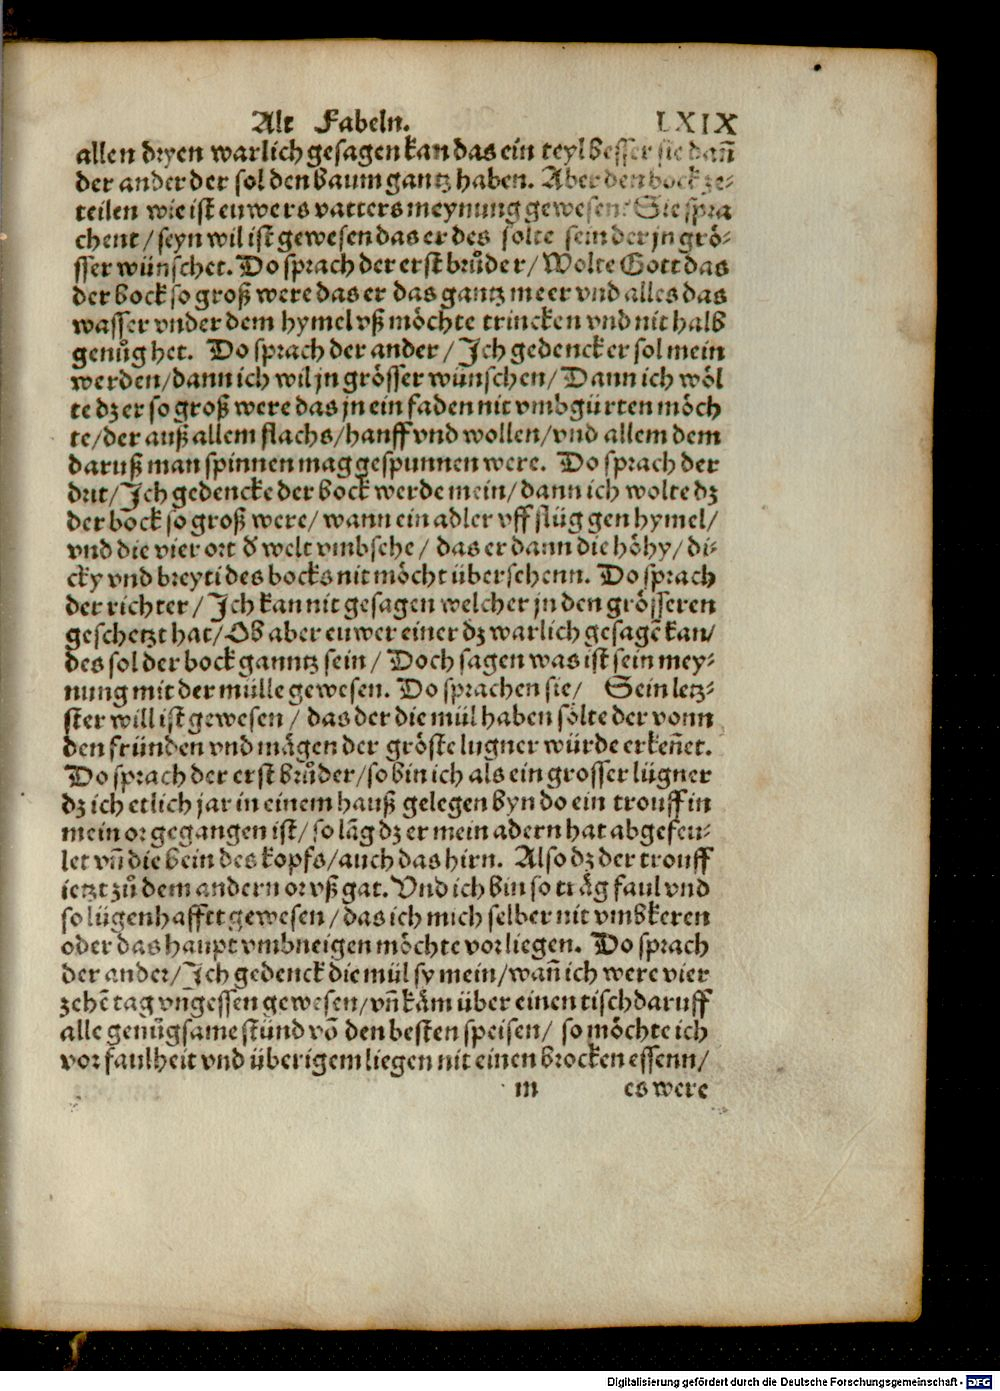 Alt Fabeln. LXIX
allen dryen warlich gesagen kan das ein teyl besser sie dañ
der ander der sol den baum gantz haben. Aber den bock ze-
teilen wie ist euwers vatters meynung gewesen: Sie spra
chent / seyn wil ist gewesen das er des solte sein der jn grö-
sser wünschet. Do sprach der erst brůder / Wolte Gott das
der bock so groß were das er das gantz meer vnd alles das
wasser vnder dem hymel vß möchte trincken vnd nit halb
genůg het. Do sprach der ander / Ich gedenck er sol mein
werden/dann ich wil jn grösser wünschen/ Dann ich wöl
te dz er so groß were das jn ein faden nit vmbgürten möch
te/der auß allem flachs/hanff vnd wollen/vnd allem dem
daruß man spinnen mag gespunnen were. Do sprach der
drit/Ich gedencke der bock werde mein/dann ich wolte dz
der bock so groß were/ wann ein adler vff flüg gen hymel/
vnd die vier ort d̓ welt vmbsehe / das er dann die höhy/di-
cky vnd breyti des bocks nit möcht übersehenn. Do sprach
der richter/ Ich kan nit gesagen welcher jn den grösseren
geschetzt hat/Ob aber euwer einer dz warlich gesagē kan/
des sol der bock ganntz sein/ Doch sagen was ist sein mey-
nung mit der mülle gewesen. Do sprachen sie/ Sein letz-
ster will ist gewesen / das der die mül haben sölte der vonn
den fründen vnd mågen der gröste lugner würde erkeñet.
Do sprach der erst brůder/so bin ich als ein grosser lügner
dz ich etlich jar in einem hauß gelegen byn do ein trouff in
mein or gegangen ist/ so lãg dz er mein adern hat abgefeu-
let vñ die bein des kopfs/auch das hirn. Also dz der trouff
ietzt zů dem andern or vß gat. Vnd ich bin so träg faul vnd
so lügenhafft gewesen/das ich mich selber nit vmbkeren
oder das haupt vmbneigen möchte vor liegen. Do sprach
der ander/Ich gedenck die mül sy mein/wañ ich were vier
zehē tag vngessen gewesen/vñ käm über einen tisch daruff
alle genůgsame stünd vō den besten speisen/ so möchte ich
vor faulheit vnd überigem liegen nit einen brocken essenn/
m es were
Digitalisierung gefördert durch die Deutsche Forschungsgemeinschaft - DFG